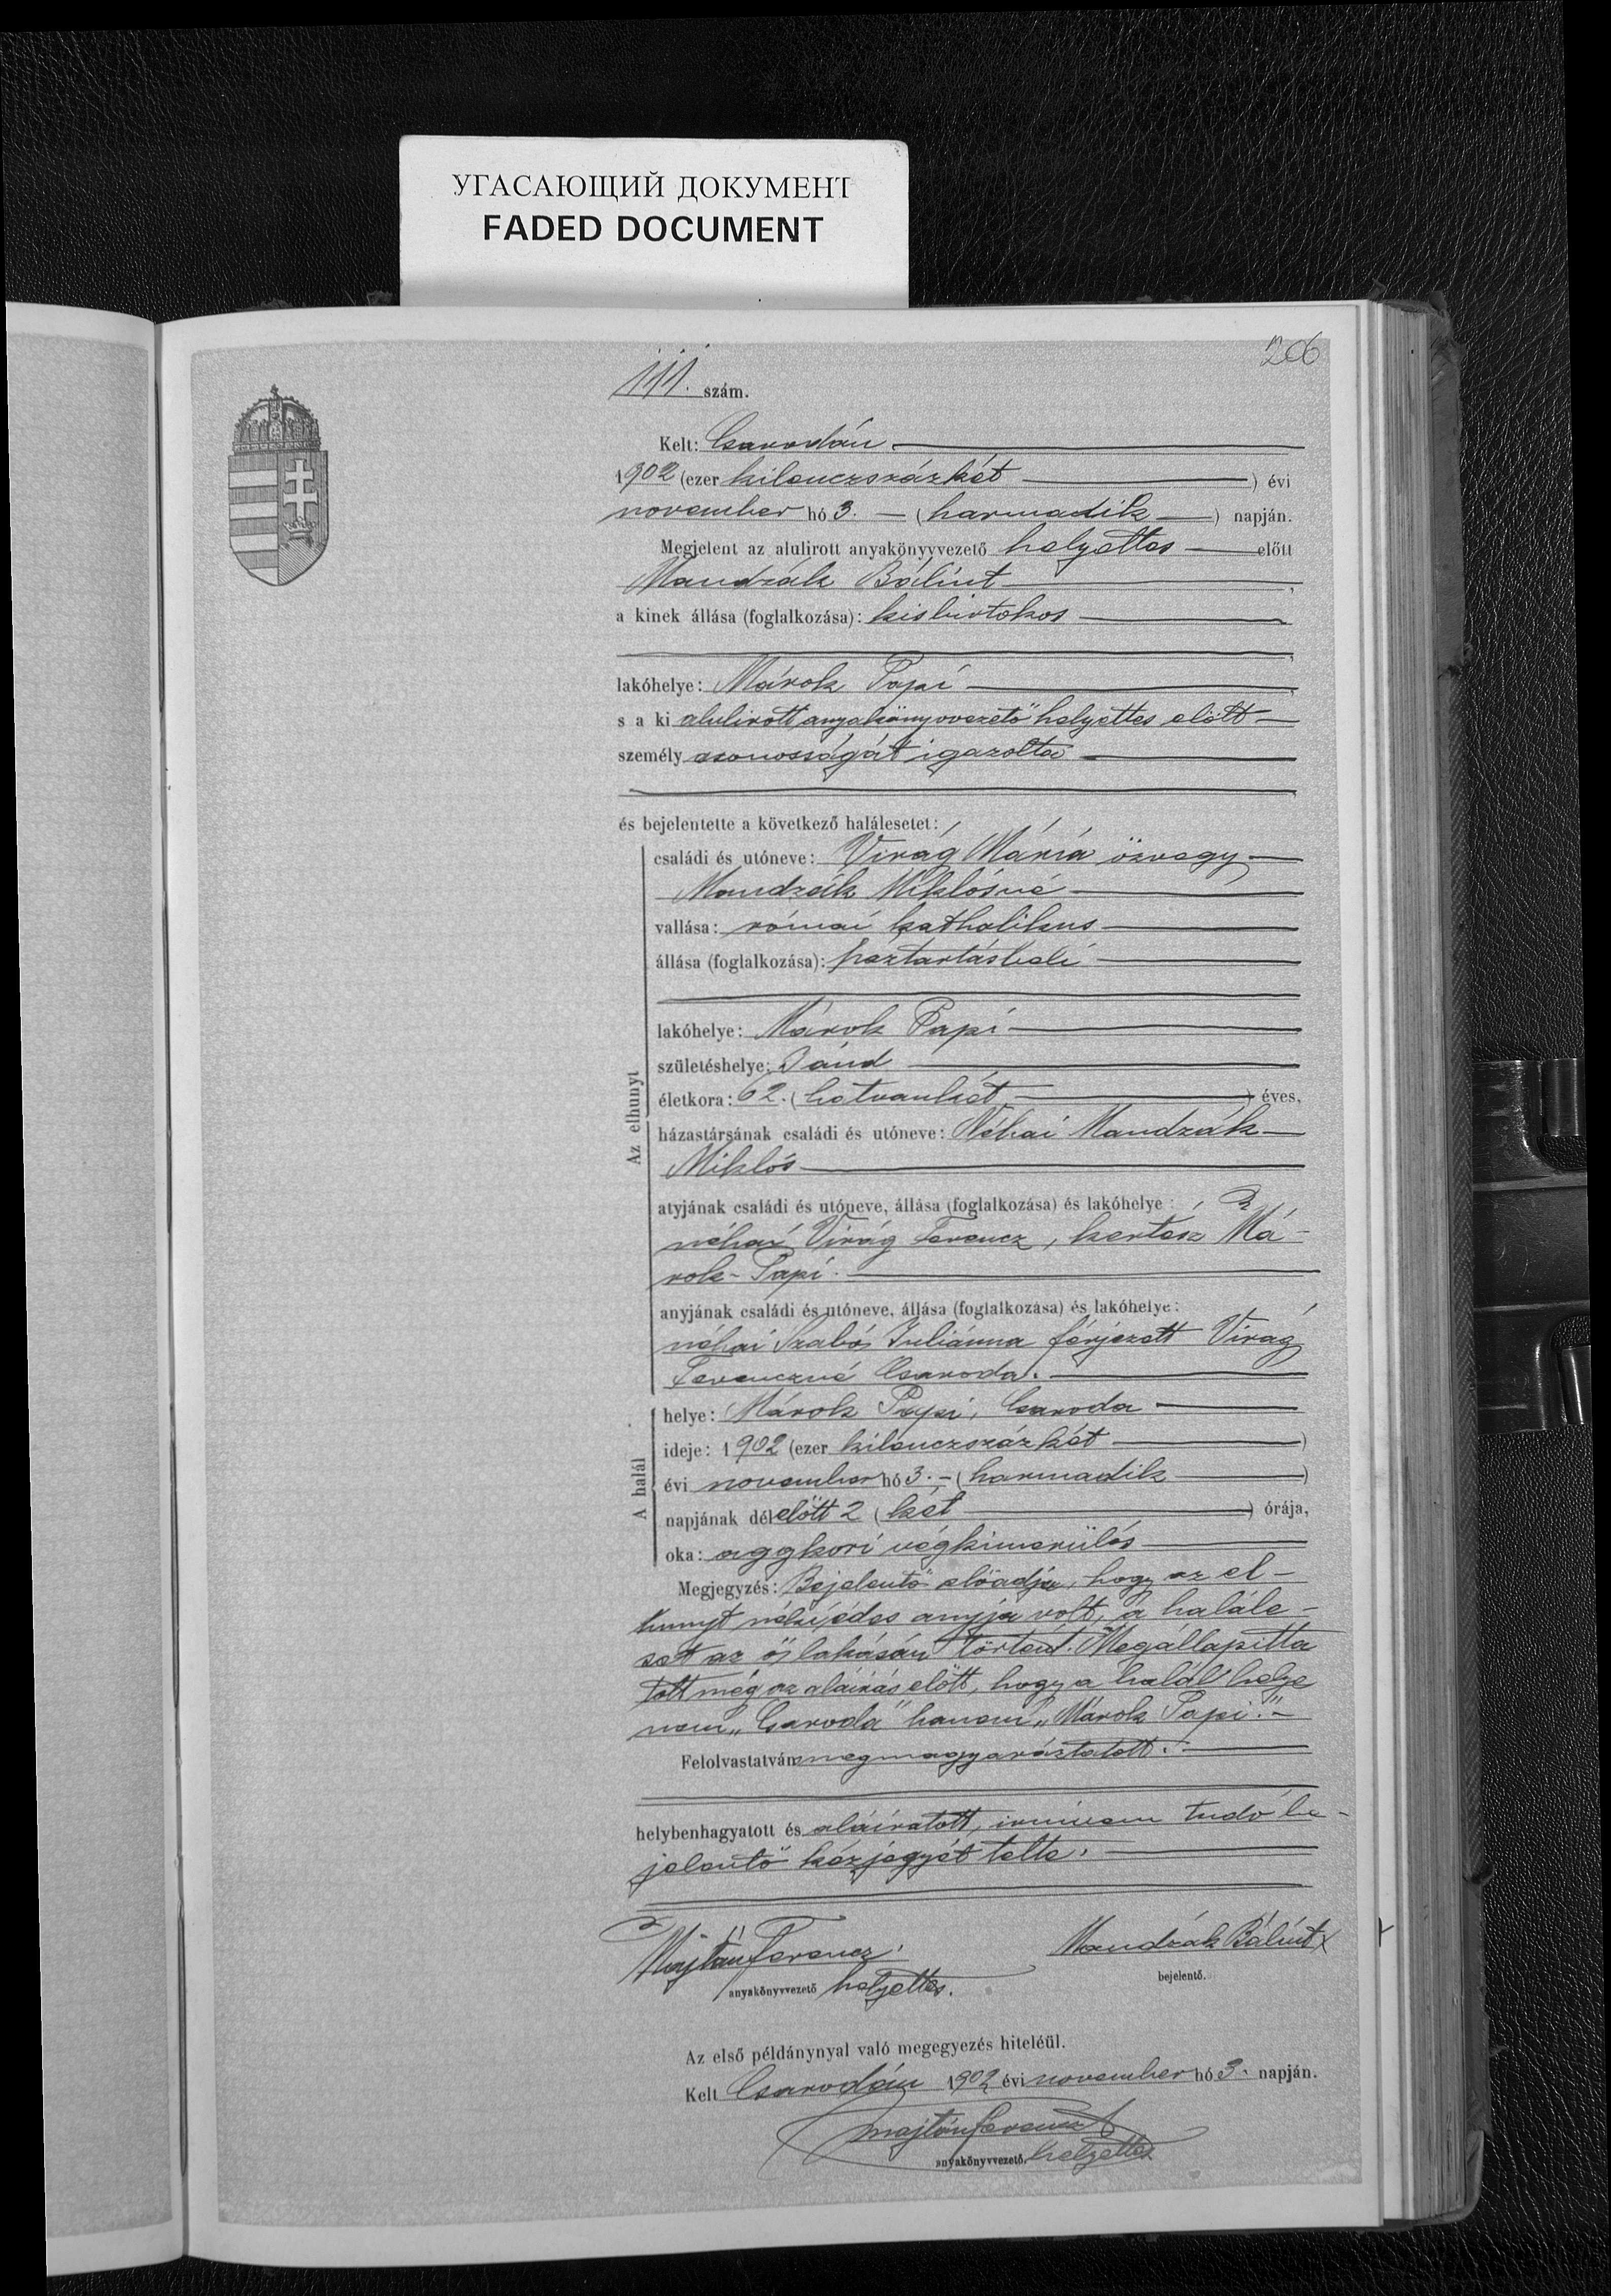 УГАСАЮЩИЙ ДОКУМЕНТ
FADED DOCUMENT
206
111. szám.
Kelt: Csarodán
1902 (ezer kilenczszázkét ) évi
november hó 3. – (harmadik ) napján.
Megjelent az alulirott anyakönyvvezető helyettes előtt
Mandzák Bálint ,
a kinek állása (foglalkozása): kisbirtokos
lakóhelye: Márok Papi
s a ki alulirott anyakönyvvezető helyettes előtt
személy azonosságát igazolta
és bejelentette a következő halálesetet:
családi és utóneve: Virág Mária özvegy
Mandzák Miklósné
vallása: római katholikus
állása (foglalkozása): háztartásbeli
lakóhelye: Márok Papi
születéshelye: Jánd
életkora: 62. (hatvankét ) éves,
Az elhunyt
házastársának családi és utóneve: Néhai Mandzák
Miklós
atyjának családi és utóneve, állása (foglalkozása) és lakóhelye:
néhai Virág Ferencz, kertész Má-
rok-Papi.
anyjának családi és utóneve, állása (foglalkozása) és lakóhelye:
néhai Szabó Juliánna férjezett Virág
Ferenczné Csaroda.
helye: Márok Papi, Csaroda
ideje: 1902 (ezer kilenczszázkét )
A halál
évi november hó 3. – (harmadik )
napjának délelőtt 2 (két ) órája,
oka: aggkori végkimerülés
Megjegyzés: Bejelentő előadja, hogy az el-
hunyt néki édes anyja volt, a halále-
set az ő lakásán történt. Megállapitta
tott még az aláirás előtt, hogy a halál helye
nem „Csaroda" hanem „Márok Papi". –
Felolvastatván megmagyaráztatott.
helybenhagyatott és aláiratott, irni nem tudó be-
jelentő kézjegyét tette.
Majtán Ferencz.
anyakönyvvezető helyettes.
Mandzák Bálint x
bejelentő.
Az első példánynyal való megegyezés hiteléül.
Kelt Csarodán 1902 évi november hó 3. napján.
Majtán Ferencz
anyakönyvvezető. helyettes